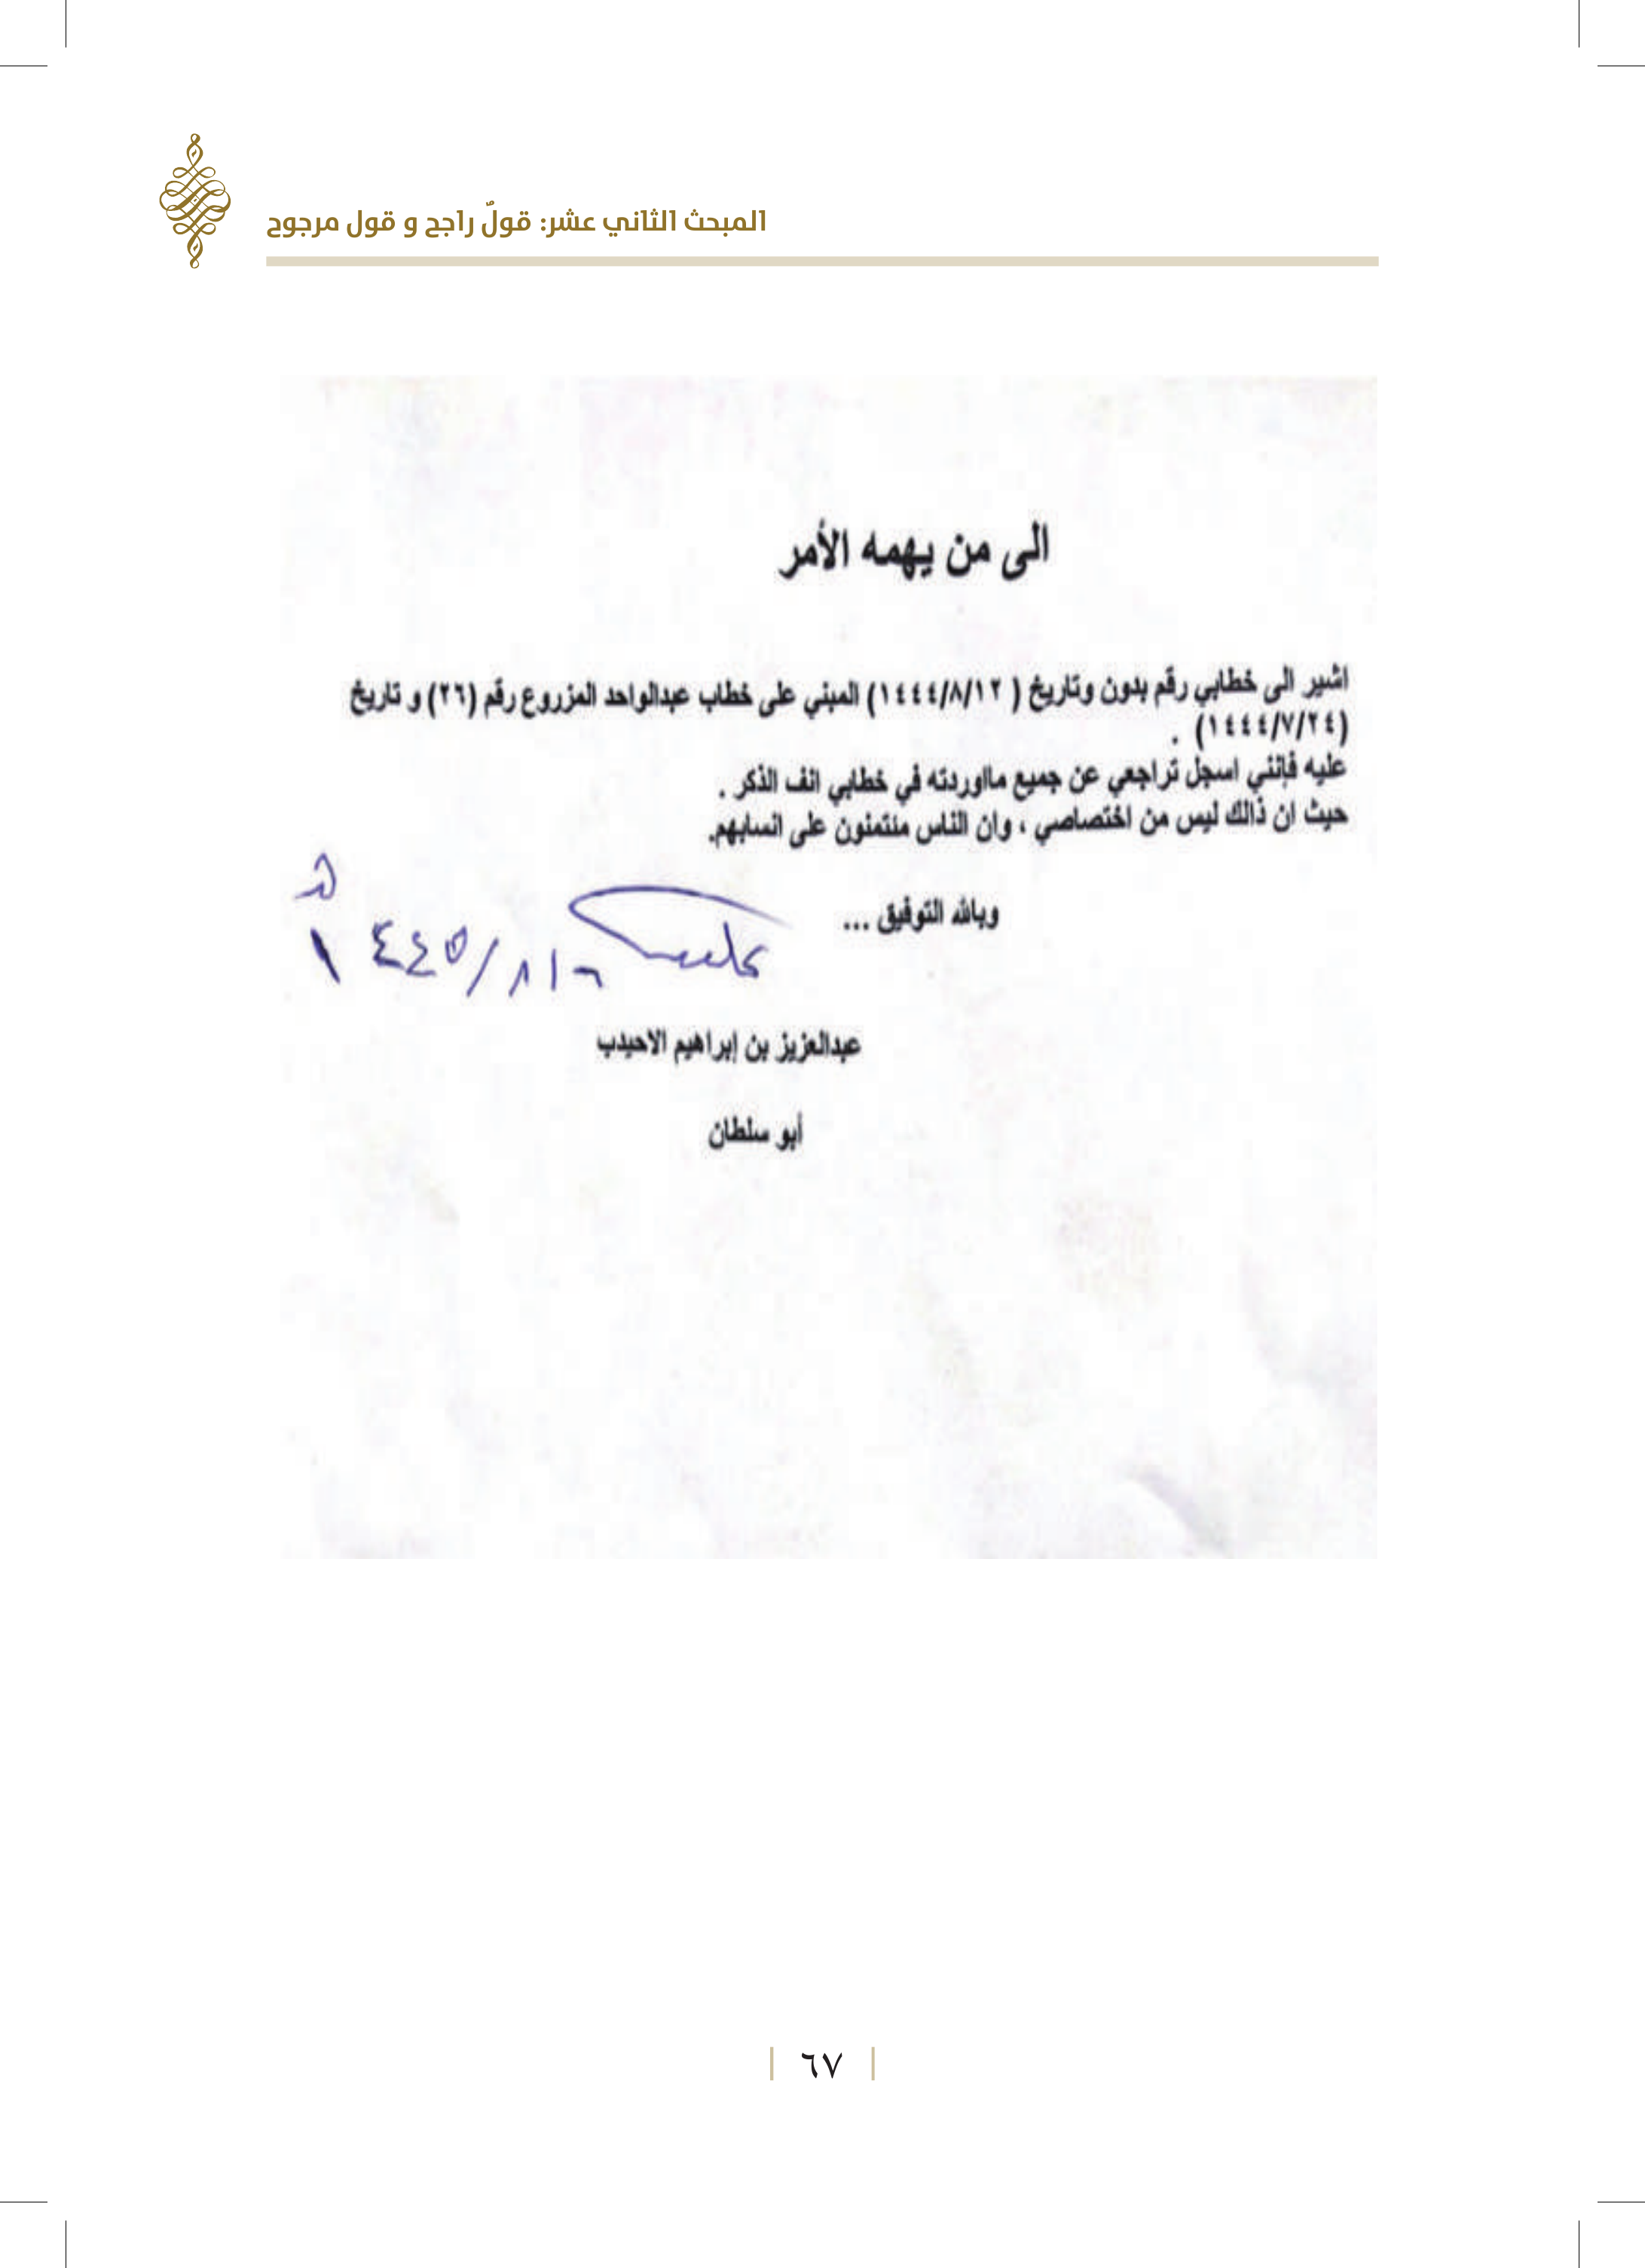 المبحث الثاني عشر: قولٌ راجح و قول مرجوح
الى من يهمه الأمر
اشير الى خطابي رقم بدون وتاريخ ( ١٤٤٤/٨/١٢) المبني على خطاب عبدالواحد المزروع رقم (٢٦) و تاريخ
(١٤٤٤/٧/٢٤) .
عليه فإنني اسجل تراجعي عن جميع مااوردته في خطابي انف الذكر .
حيث ان ذالك ليس من اختصاصي ، وان الناس مئتمنون على انسابهم.
وبالله التوفيق ...
عبدالعزيز بن إبراهيم الاحيدب
أبو سلطان
٦٧